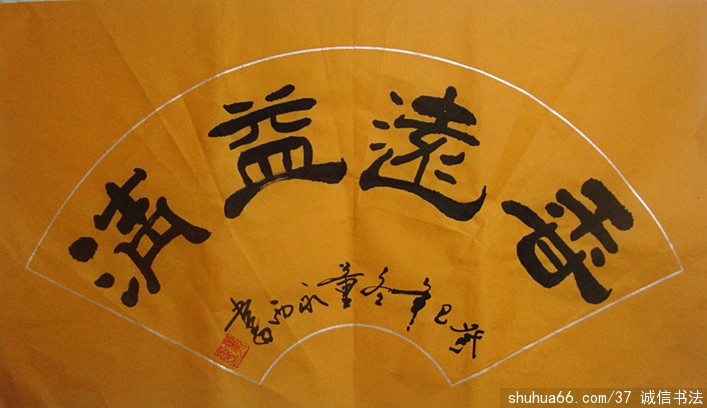 香遠益清
癸巳年冬董永書
shuhua66.com/37 诚信书法